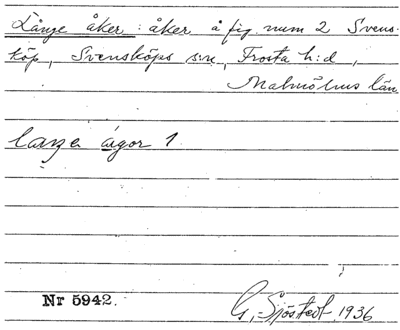 Långe åker : åker å fig. num 2 Svens-
köp, Svensköps s:n, Frosta h:d,
Malmöhus län
lange ågor 1
Nr 5942.
G. Sjöstedt 1936